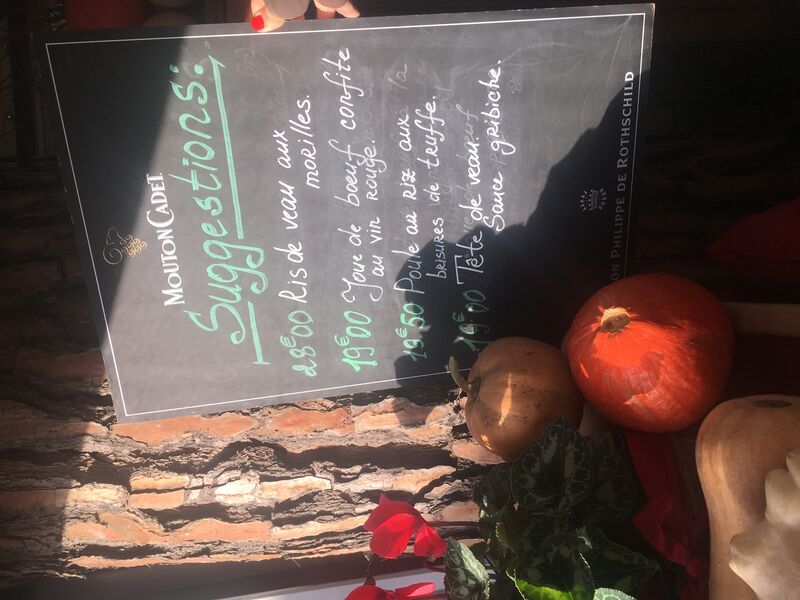 MOUTON CADET
Suggestions:
28€00 Ris de veau aux
morilles.
19€00 Joue de bœuf confite
au vin rouge.
19€50 Poule au riz aux
brisures de truffe.
19€00 Tête de veau.
Sauce gribiche.
ON PHILIPPE DE ROTHSCHILD